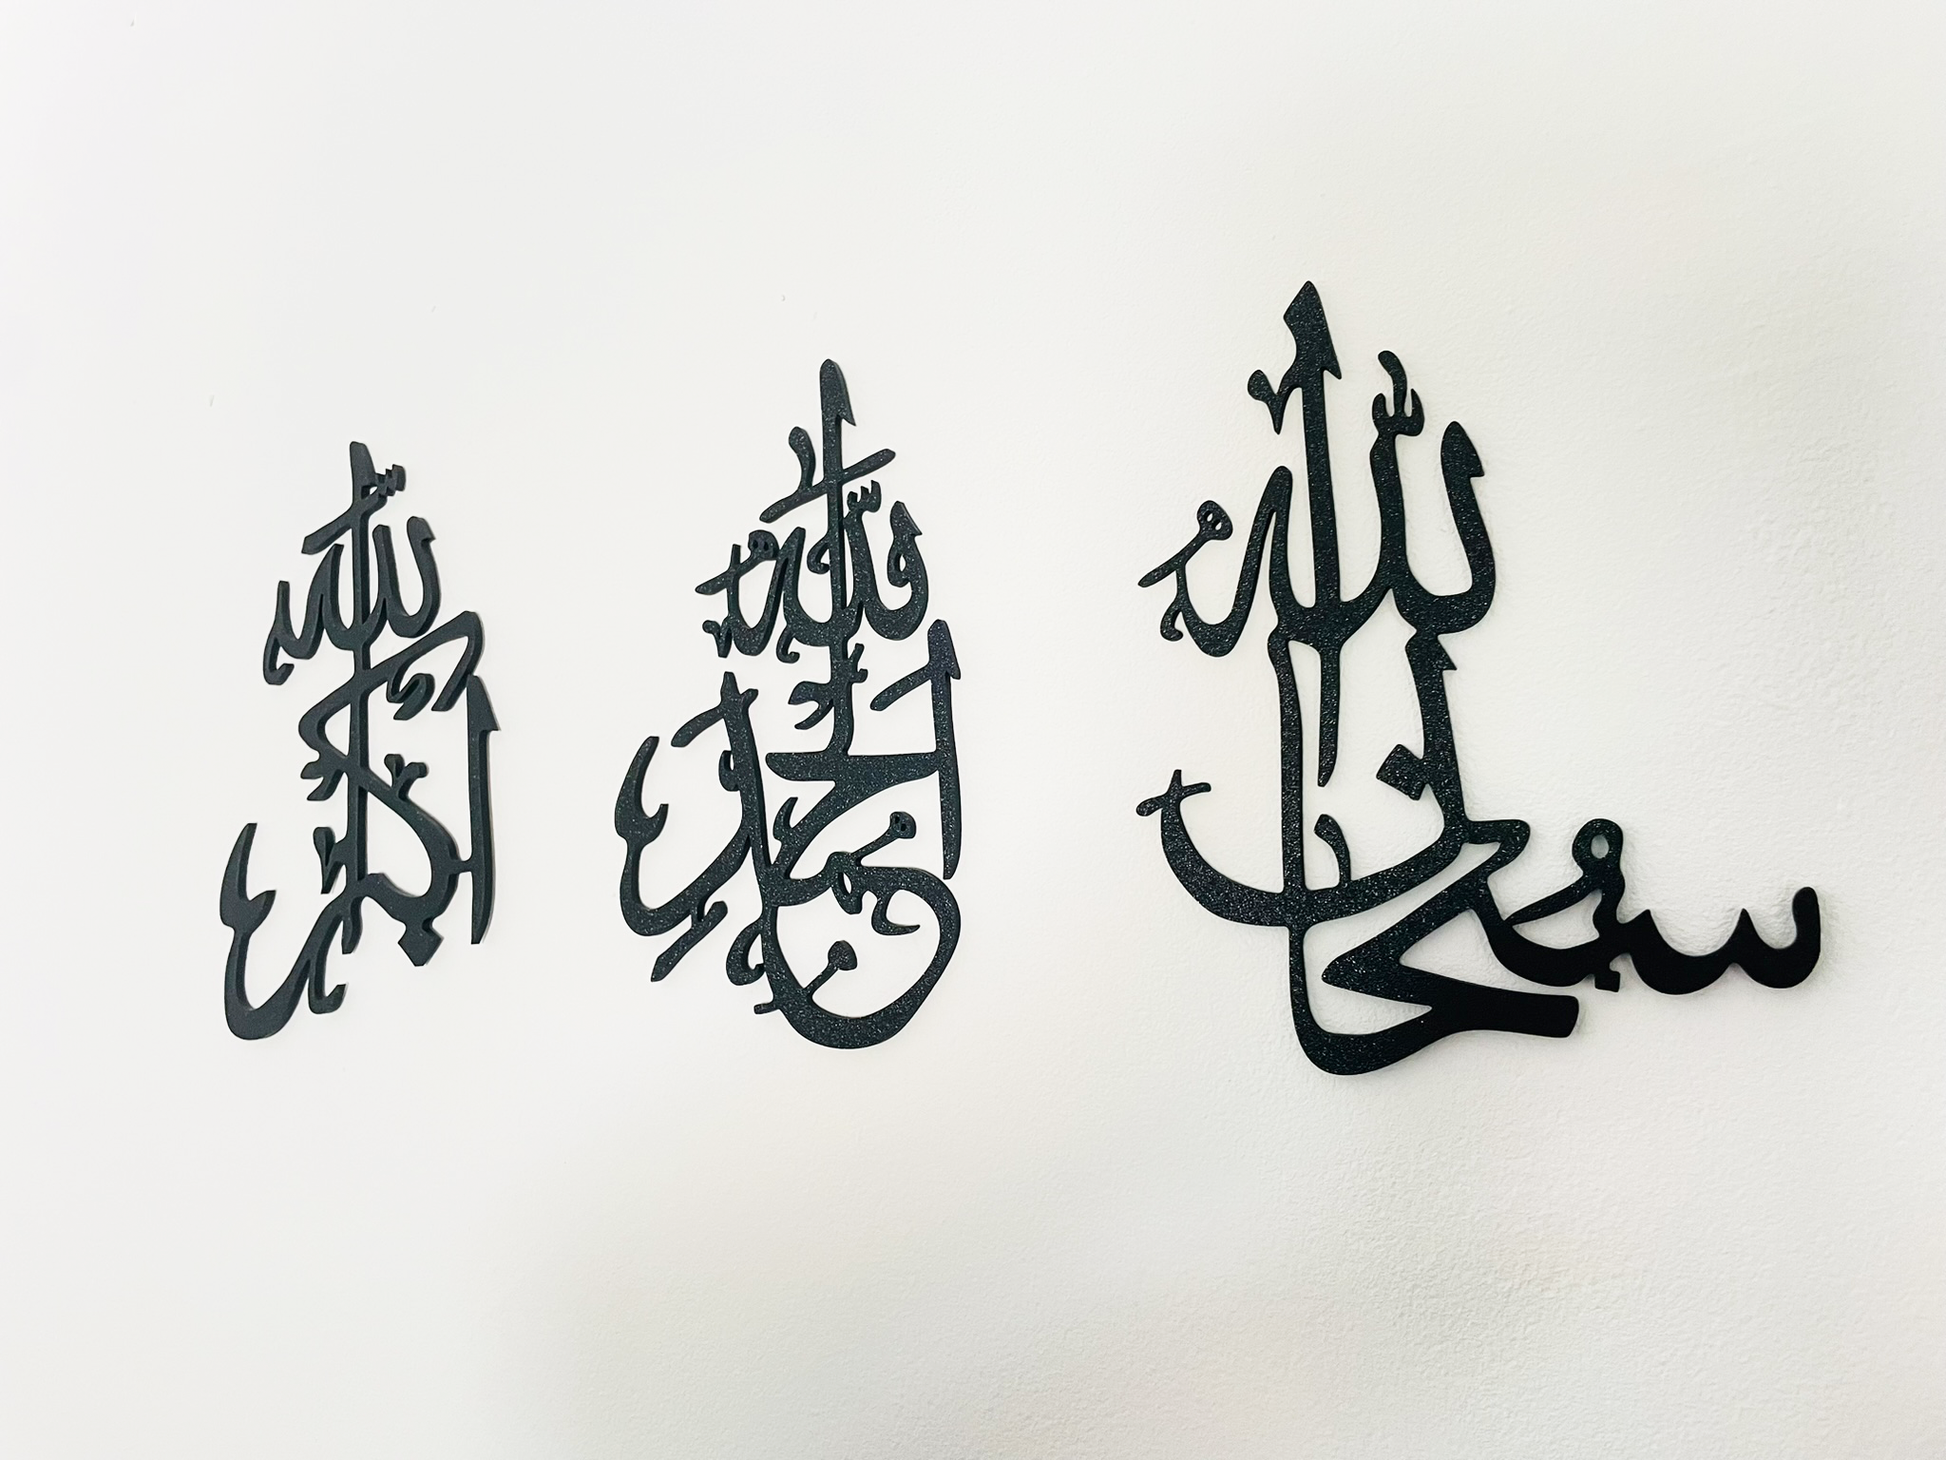 سُبْحَانَ اللّٰهِ
الْحَمْدُ لِلّٰهِ
اللّٰهُ أَكْبَر